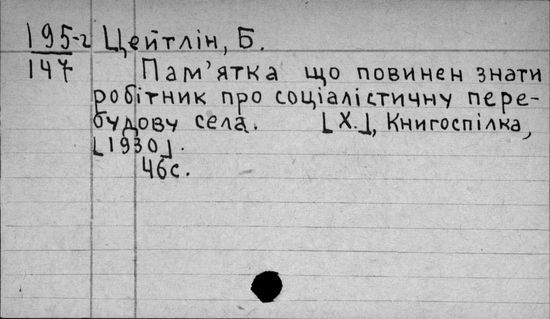 195-г Цейтлін, Б.
147 Пам'ятка що повинен знати
робітник про соціалістичну пере-
будову села. [Х.], Книгоспілка,
[1930].
46с.